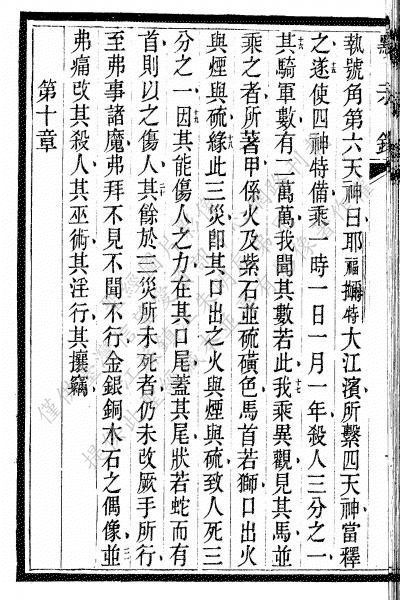 執號角第六天神曰耶福拉特大江濱所繫四天神當釋
之遂使四神特備乘一時一日一月一年殺人三分之一
其騎軍數有二萬萬我聞其數若此我乘異觀見其馬並
乘之者所著甲係火及紫石並硫磺色馬首若獅口出火
與煙與硫緣此三災卽其口出之火與煙與硫致人死三
分之一因其能傷人之力在其口尾蓋其尾狀若蛇而有
首則以之傷人其餘於三災所未死者仍未改厥手所行
至弗事諸魔弗拜不見不聞不行金銀銅木石之偶像並
弗痛改其殺人其巫術其淫行其攘竊
第十章